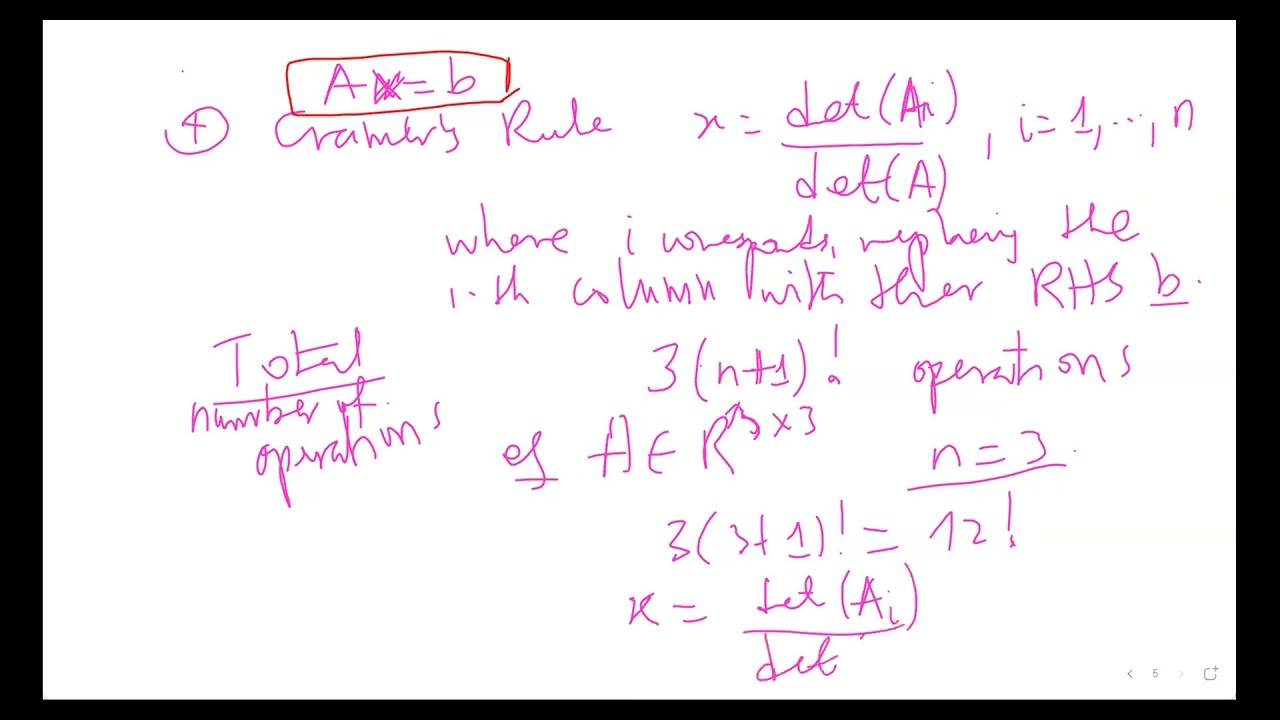 Ax=b
④ Cramer's Rule x = det(Ai) / det(A) , i=1,...,n
where i corresponds, replacing the
i-th column with ther RHS b.
Total
number of
operations
3(n+1)! operations
eg A∈R^3×3
n=3
3(3+1)! = 12!
x = det(Ai) / det
5